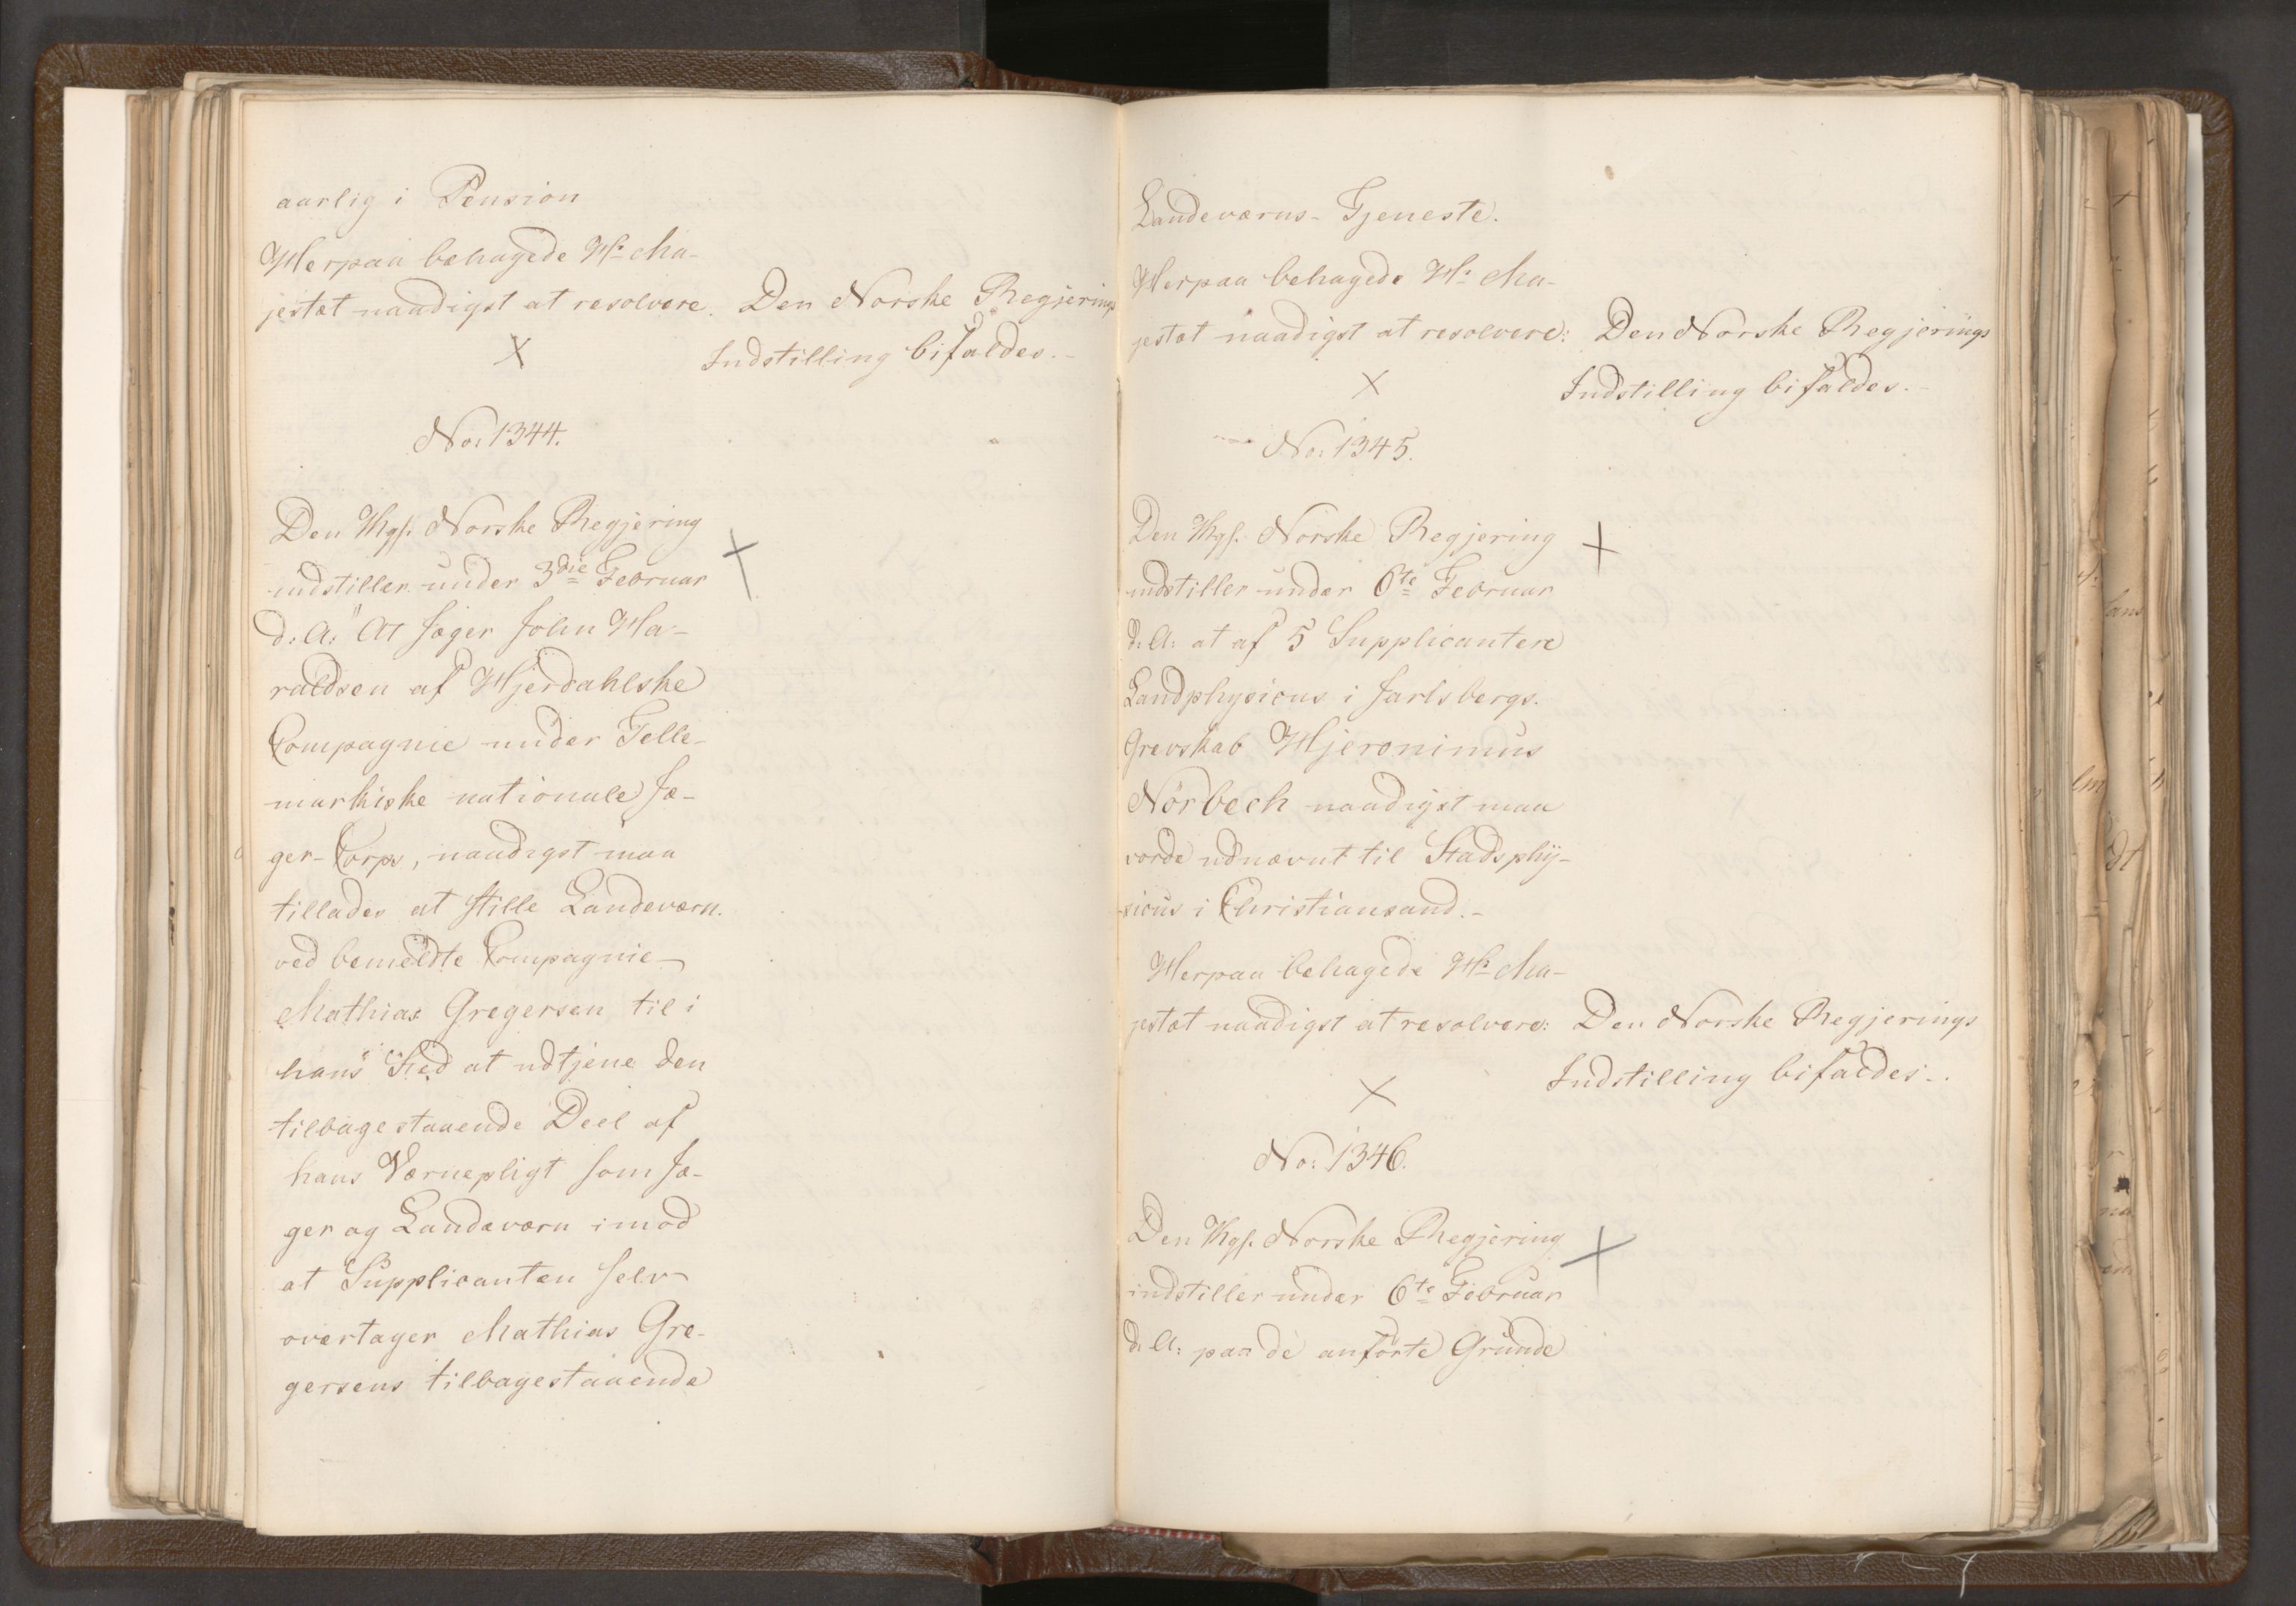 aarlig i Pension
Herpaa behagede Hs Ma-
jestæt naadigst at resolvere. Den Norske Regjerings
X Indstilling bifaldes.-
No: 1344.
Den Kgl. Norske Regjering
indstiller under 3die Februar
d. A: At Jæger John Ha-
raldsen af Hjerdahlske
Compagnie under Telle-
markiske nationale Jæ-
ger-Corps, naadigst maa
tillades at stille Landeværn.
ved bemeldte Compagnie
Mathias Gregersen til i
hans Sted at udtjene den
tilbagestaaende Deel af
hans Værnepligt som Jæ-
ger og Landeværn imod
at Supplicanten selv
overtager Mathias Gre-
gersens tilbagestaaende
Landeværns-Tjeneste.
Herpaa behagede Hs Ma-
jestæt naadigst at resolvere: Den Norske Regjerings
X Indstilling bifaldes.-
No: 1345.
Den Kgl. Norske Regjering
indstiller under 6te Februar
d. A: at af 5 Supplicantere
Landphysicus i Jarlsbergs.
Grevskab Hjeronimus
Nørbech naadigst maa
vorde udnævnt til Stadsphy-
sicus i Christiansand.-
Herpaa behagede Hs Ma-
jestæt naadigst at resolvere: Den Norske Regjerings
X Indstilling bifaldes..
No: 1346.
Den Kgl. Norske Regjering
indstiller under 6te Februar
d. A: paa de anførte Grunde